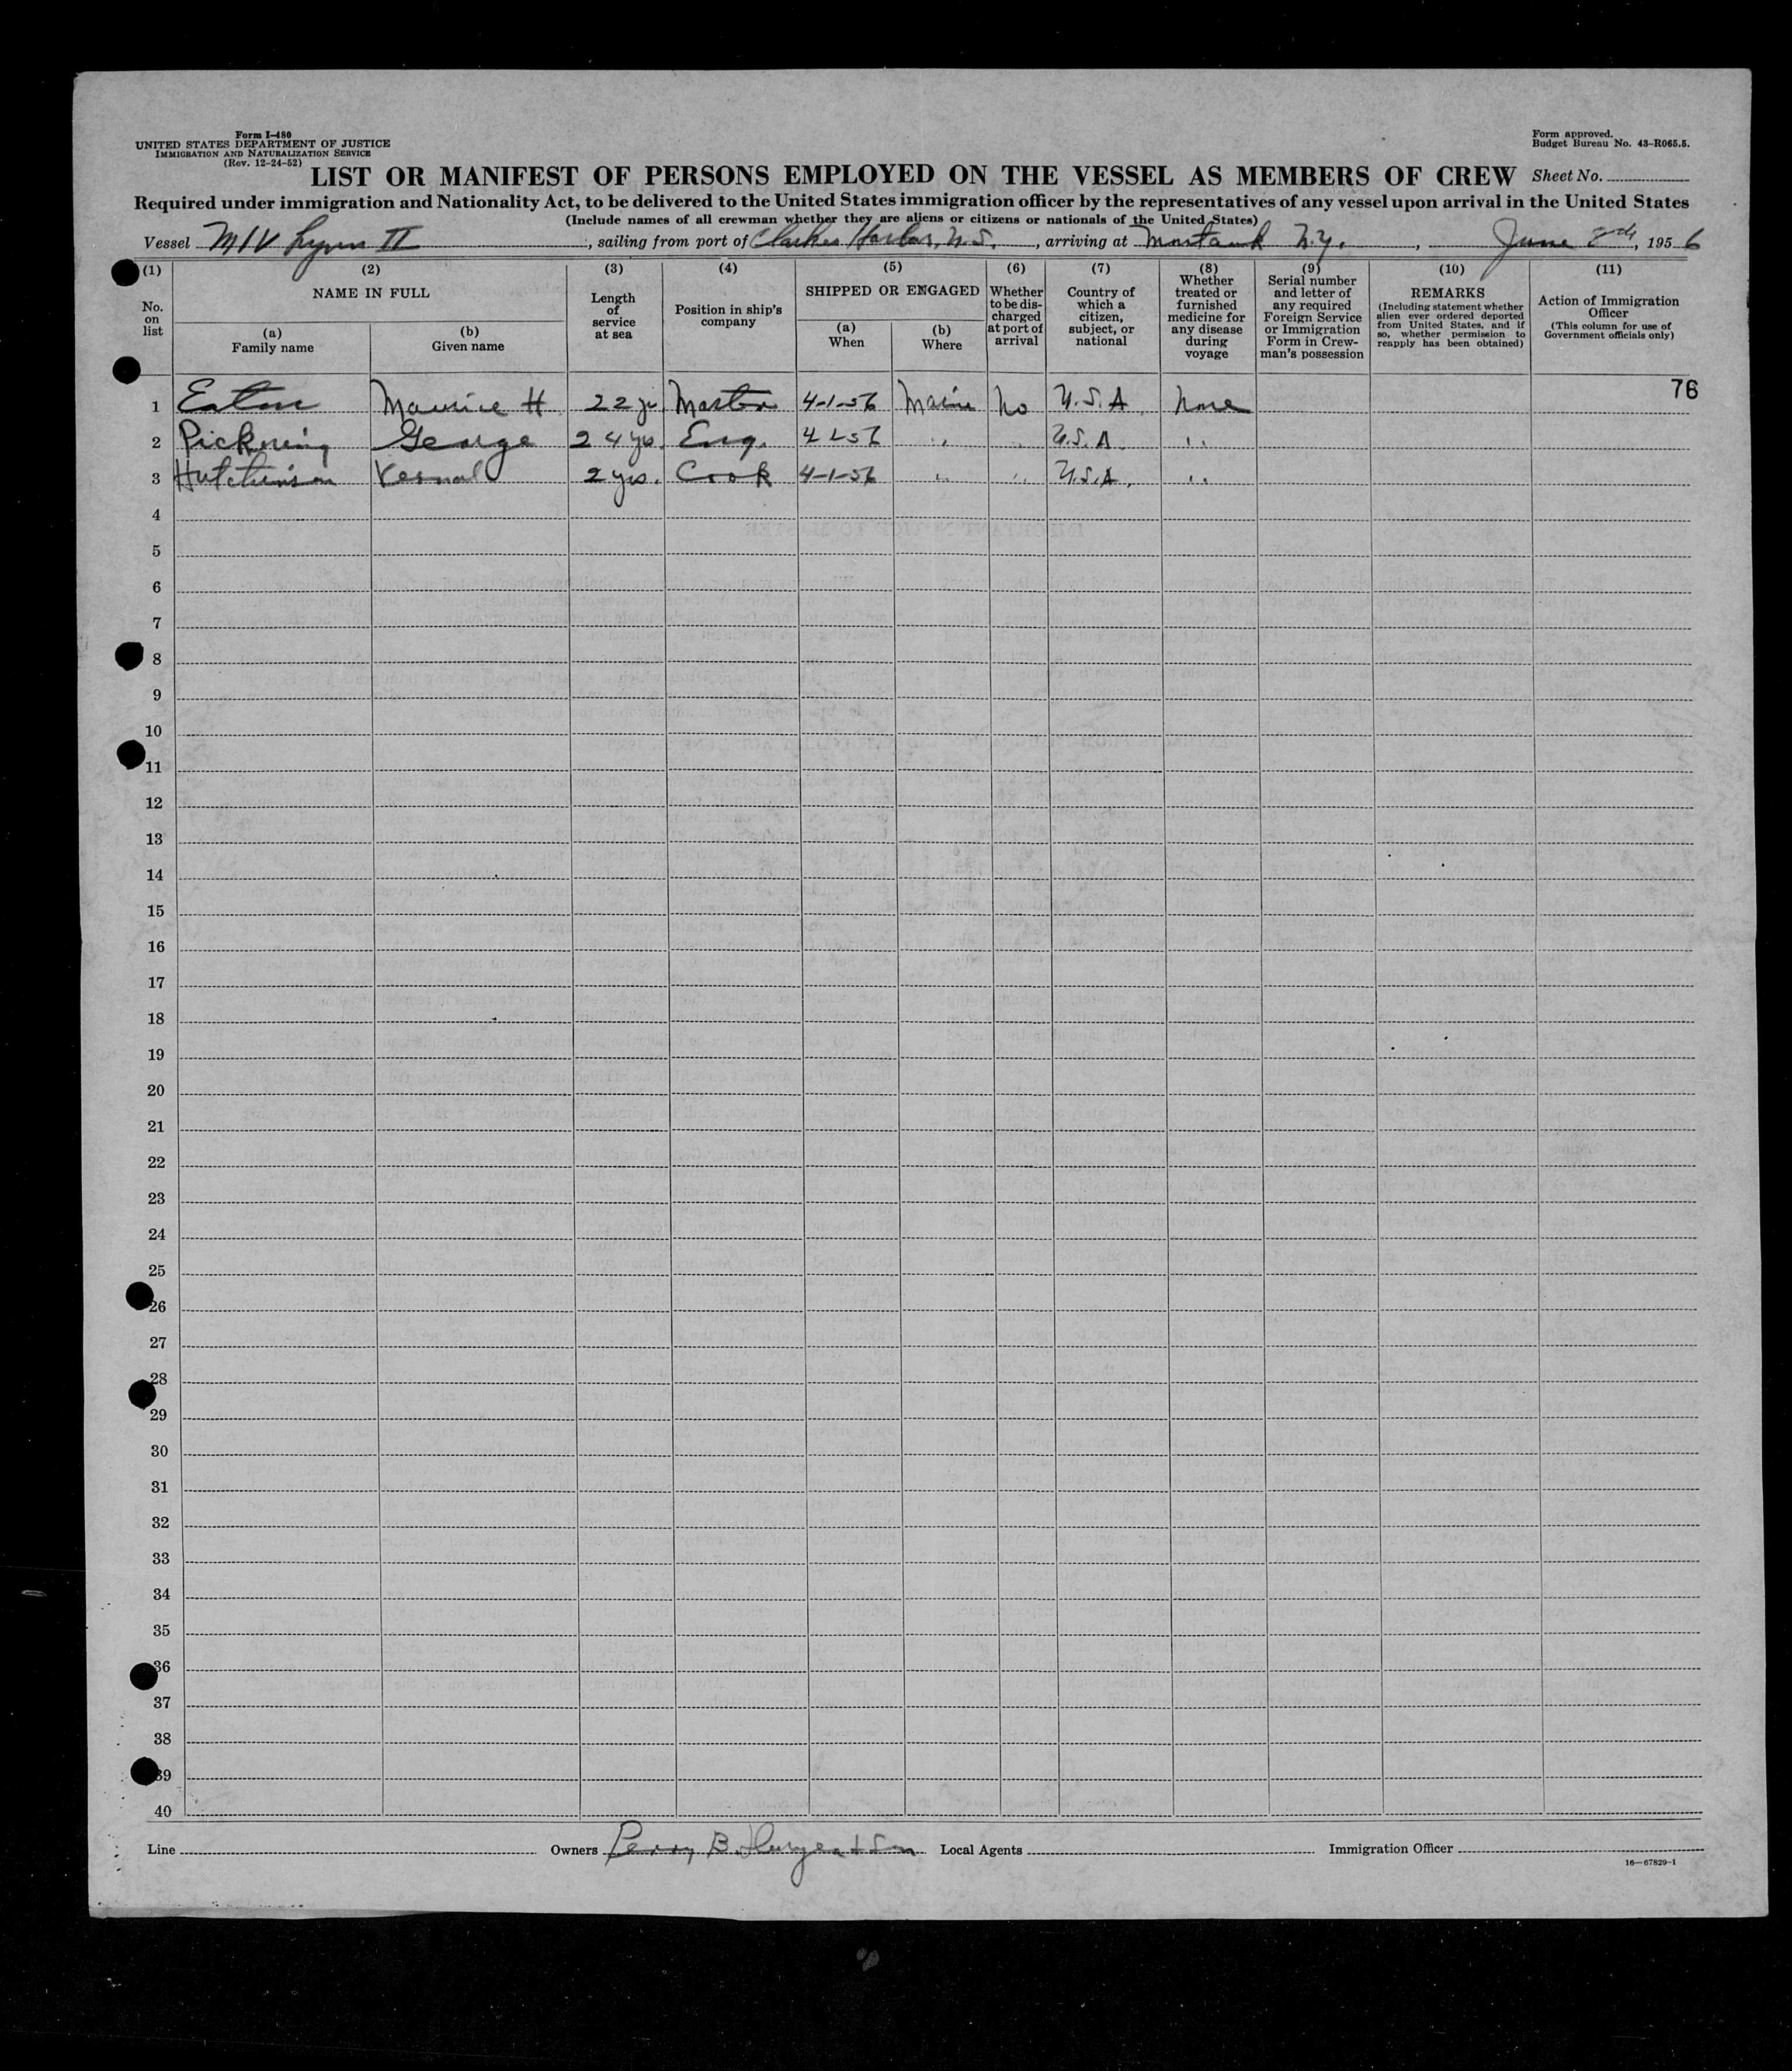 Form I-480
UNITED STATES DEPARTMENT OF JUSTICE
IMMIGRATION AND NATURALIZATION SERVICE
(Rev. 12-24-52)
Form approved.
Budget Bureau No. 43-R065.5.
LIST OR MANIFEST OF PERSONS EMPLOYED ON THE VESSEL AS MEMBERS OF CREW Sheet No.
Required under immigration and Nationality Act, to be delivered to the United States immigration officer by the representatives of any vessel upon arrival in the United States
(Include names of all crewman whether they are aliens or citizens or nationals of the United States)
Vessel M/V Lynn II, sailing from port of Clarkes Harbor, N.S., arriving at Montauk N.Y., June 2nd, 1956
(1) (2) (3) (4) (5) (6) (7) (8) (9) (10) (11)
No. on list
NAME IN FULL
(a) Family name
(b) Given name
Length of service at sea
Position in ship's company
SHIPPED OR ENGAGED
(a) When
(b) Where
Whether to be discharged at port of arrival
Country of which a citizen, subject, or national
Whether treated or furnished medicine for any disease during voyage
Serial number and letter of any required Foreign Service or Immigration Form in Crewman's possession
REMARKS
(Including statement whether alien ever ordered deported from United States, and if so, whether permission to reapply has been obtained)
Action of Immigration Officer
(This column for use of Government officials only)
76
1 Eaton Maurice H 22 yr Master 4-1-56 Maine No U.S.A None
2 Pickering George 24 yrs. Eng. 4-1-56 " " U.S.A. "
3 Hutchinson Vernal 2 yrs. Cook 4-1-56 " " U.S.A. "
4
5
6
7
8
9
10
11
12
13
14
15
16
17
18
19
20
21
22
23
24
25
26
27
28
29
30
31
32
33
34
35
36
37
38
39
40
Line Owners Perry B. Duryea & Son Local Agents Immigration Officer
16—67829-1